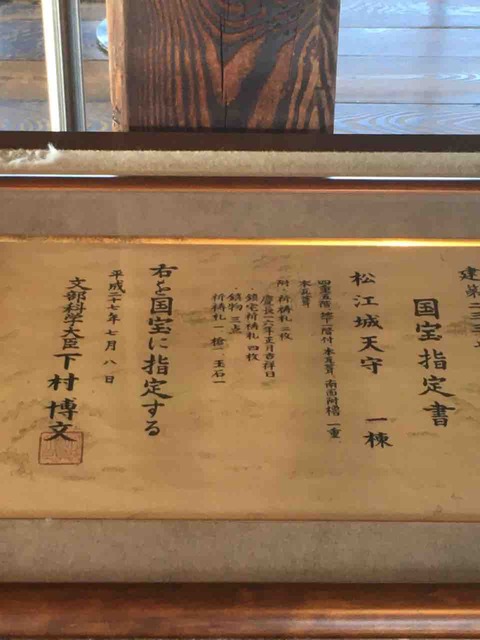 建第
国宝指定書
松江城天守 一棟
四重五階、地下一階付 本瓦葺 南面附櫓 一重、
本瓦葺
附・祈祷札二枚
慶長十六年正月吉祥日
・鎮宅祈祷札 四枚
・鎮物 三点
祈祷札一 槍一 玉石一
右を国宝に指定する
平成二十七年七月八日
文部科学大臣 下村博文